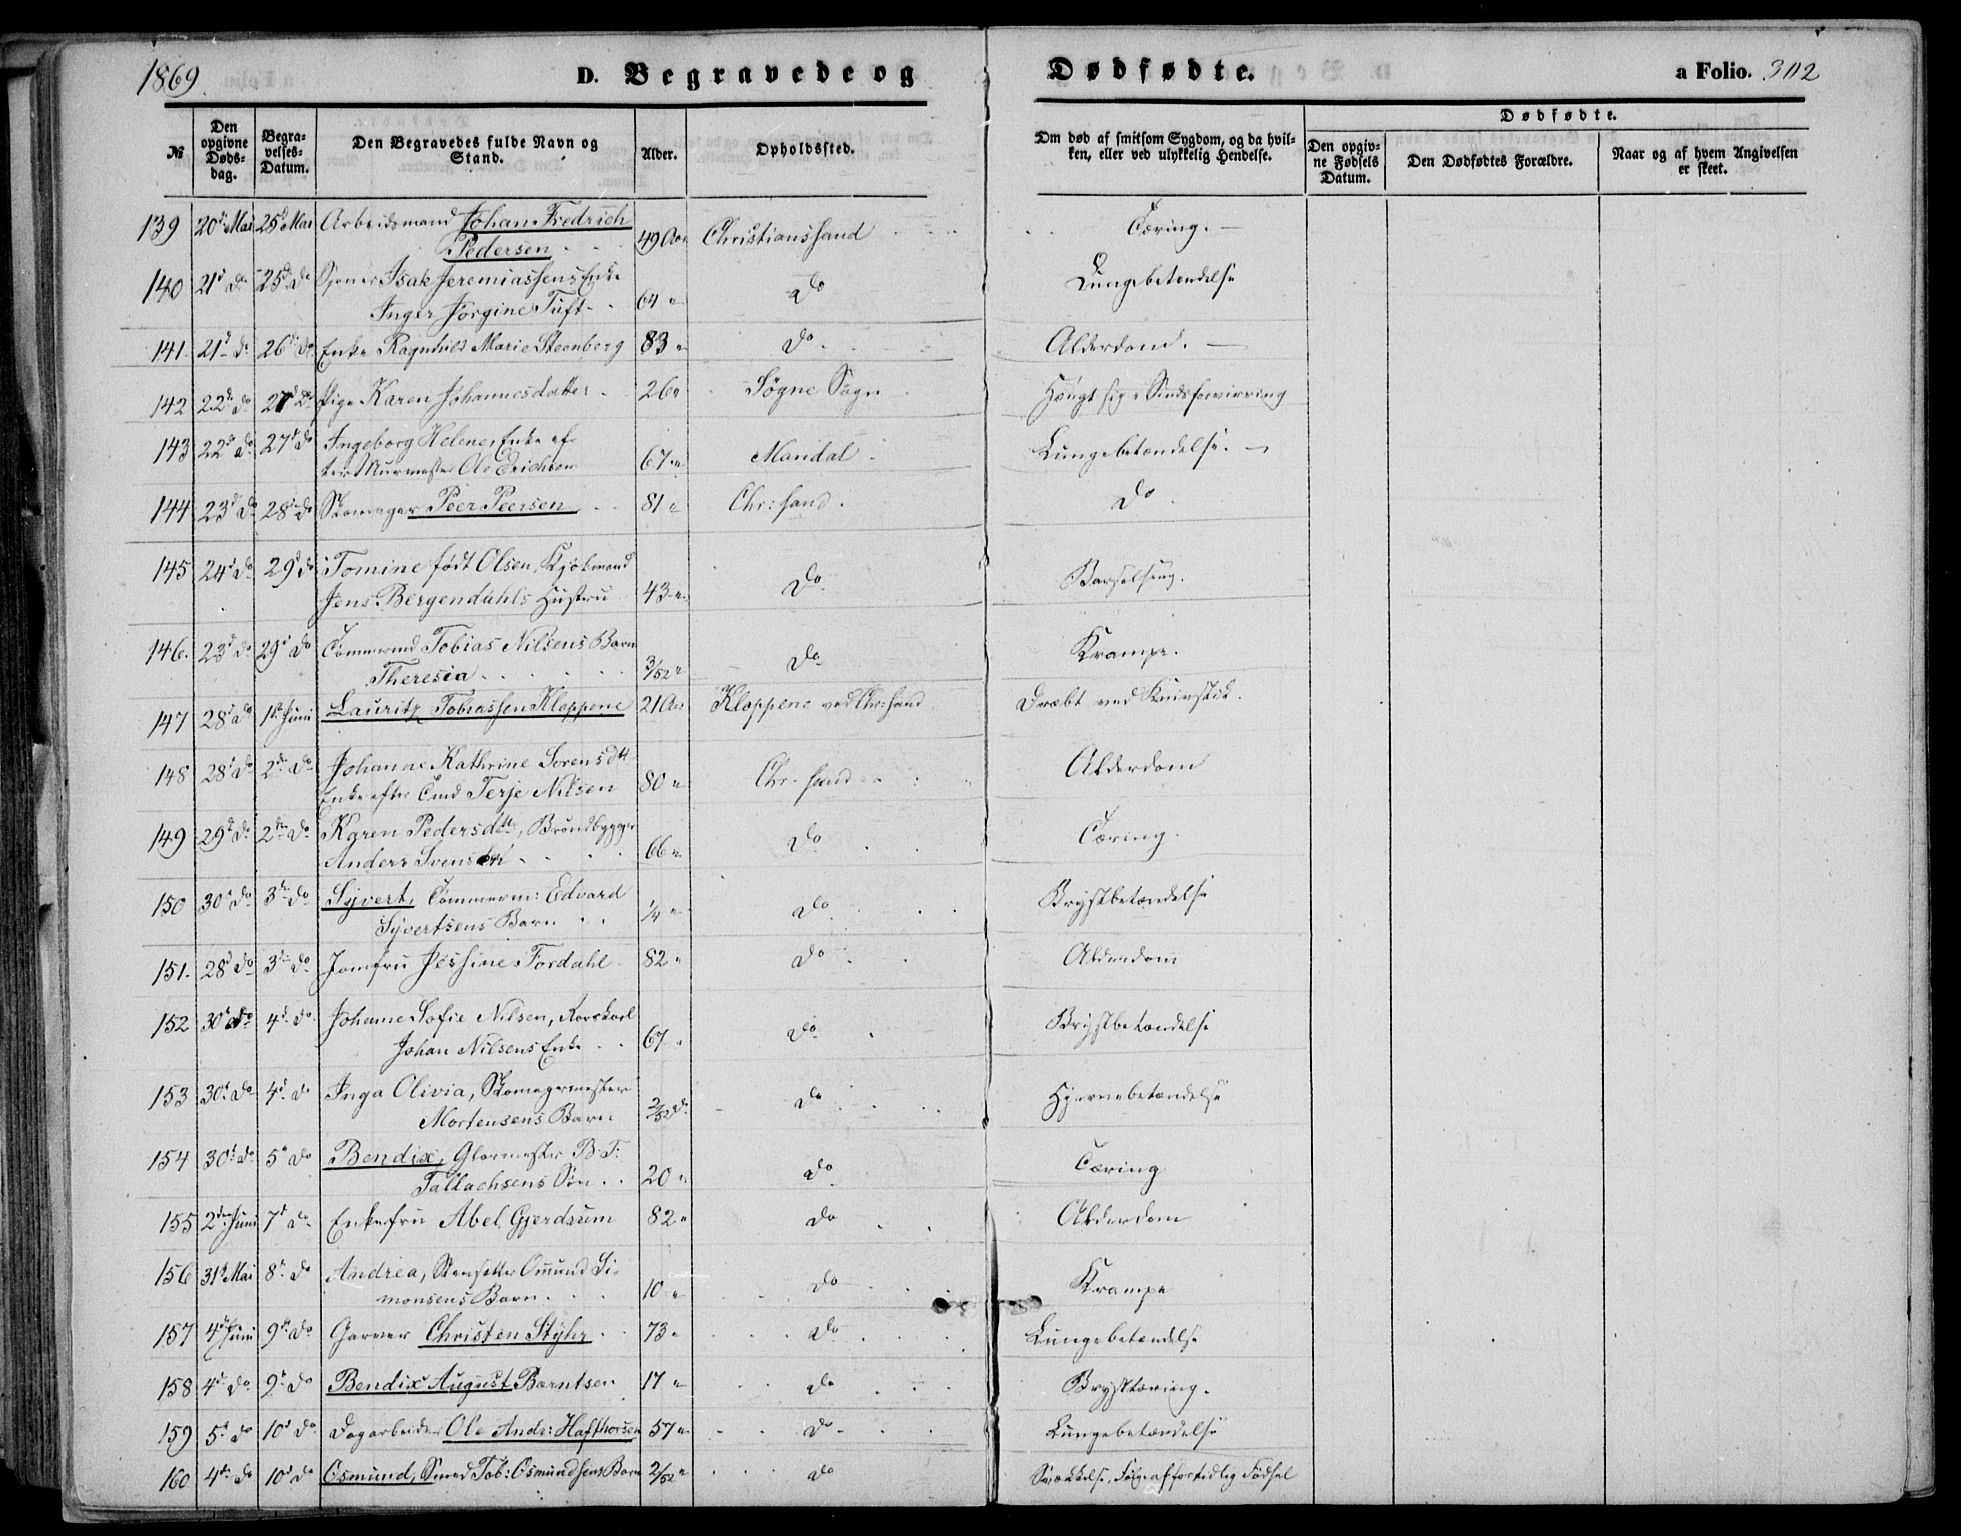 1869.
D. Begravede og Dødfødte.
a Folio. 302
Dødfødte.
№ Den opgivne Døds-dag. Begra-velses-Datum. Den Begravedes fulde Navn og Stand. Alder. Opholdssted. Om død af smitsom Sygdom, og da hvil-ken, eller ved ulykkelig Hendelse. Den opgiv-ne Fødsels Datum. Den Dødfødtes Forældre. Naar og af hvem Angivelsen er skeet.
139 20d Mai 25d Mai Arbeidsmand Johan Fredrich
Pedersen 49 Aar Christianssand Tæring.
140 21d do 25d do Isak Jeremiassens Enke
Inger Jorgine Tuft 64 " do Lungebetændelse
141. 21d do 26d do Enke Ragnhild Marie Steenberg 83 " do. Alderdom.
142 22d do 27d do Pige Karen Johannesdatter 26 " Søgne Sogn Hængt sig i Sindsforvirring
143 22d do 27d do Ingeborg Helene, Enke ef-
ter Murmester Ole Erichsen 67 " Mandal Lungebetændelse.
144 23d do 28d do Skomager Peer Peersen 81 " Chr:sand. do
145 24d do 29d do Tomine født Olsen, Kjøbmand
Jens Bergendahls Hustru 43 " do Barselseng.
146. 23d do 29d do Tømmermd Tobias Nilsens Barn
Theresia 3/52 " do Krampe.
147 28d do 1ste Juni Lauritz Tobiassen Kloppene 21 Aar Kloppene ved Chr:sand Dræbt ved Knivstik.
148 28d do 2den do Johanne Kathrine Sorensdtt
Enke efter Terje Nilsen 80 " Chr-sand Alderdom
149 29d do 2den do Karen Pedersdtt, Brøndbygger
Anders Svensens 66 " do Tæring.
150 30d do 3die do Syvert, Tømmerm: Edvard
Syvertsens Barn 1/4 " do Brystbetændelse
151. 28d do 3die do Jomfru Jessine Fordahl 82 " do Alderdom
152 30d do 4d do Johanne Sofie Nilsen, Rorskarl
Johan Nilsens Enke 67 " do Brystbetændelse
153 30d do 4d do Inga Olivia, Skomagermester
Mortensens Barn 2/52 do do Hjernebetændelse
154 30d do 5te do Bendix, Glarmester B. T:
Tallachsens Søn 20 " do Tæring
155 2den Juni 7d do Enkefru Abel Gjerdrum 82 " do Alderdom
156 31te Mai 8d do Andrea, Stensetter Omund Si-
monsens Barn 10 " do Krampe
157 4de Juni 9de do Garver Christen Styhr 73 " do Lungebetændelse
158 4de do 9de do Bendix August Barntsen 17 " do Brysttæring.
159 5te do 10d do Dagarbeider Ole Andr: Hafthorsen 57 " do Lungebetændelse
160 4de do 10d do Osmund, Smed Tob: Osmundsens Barn 2/52 " do Svækkelse, Følge af fortidlig Fødsel